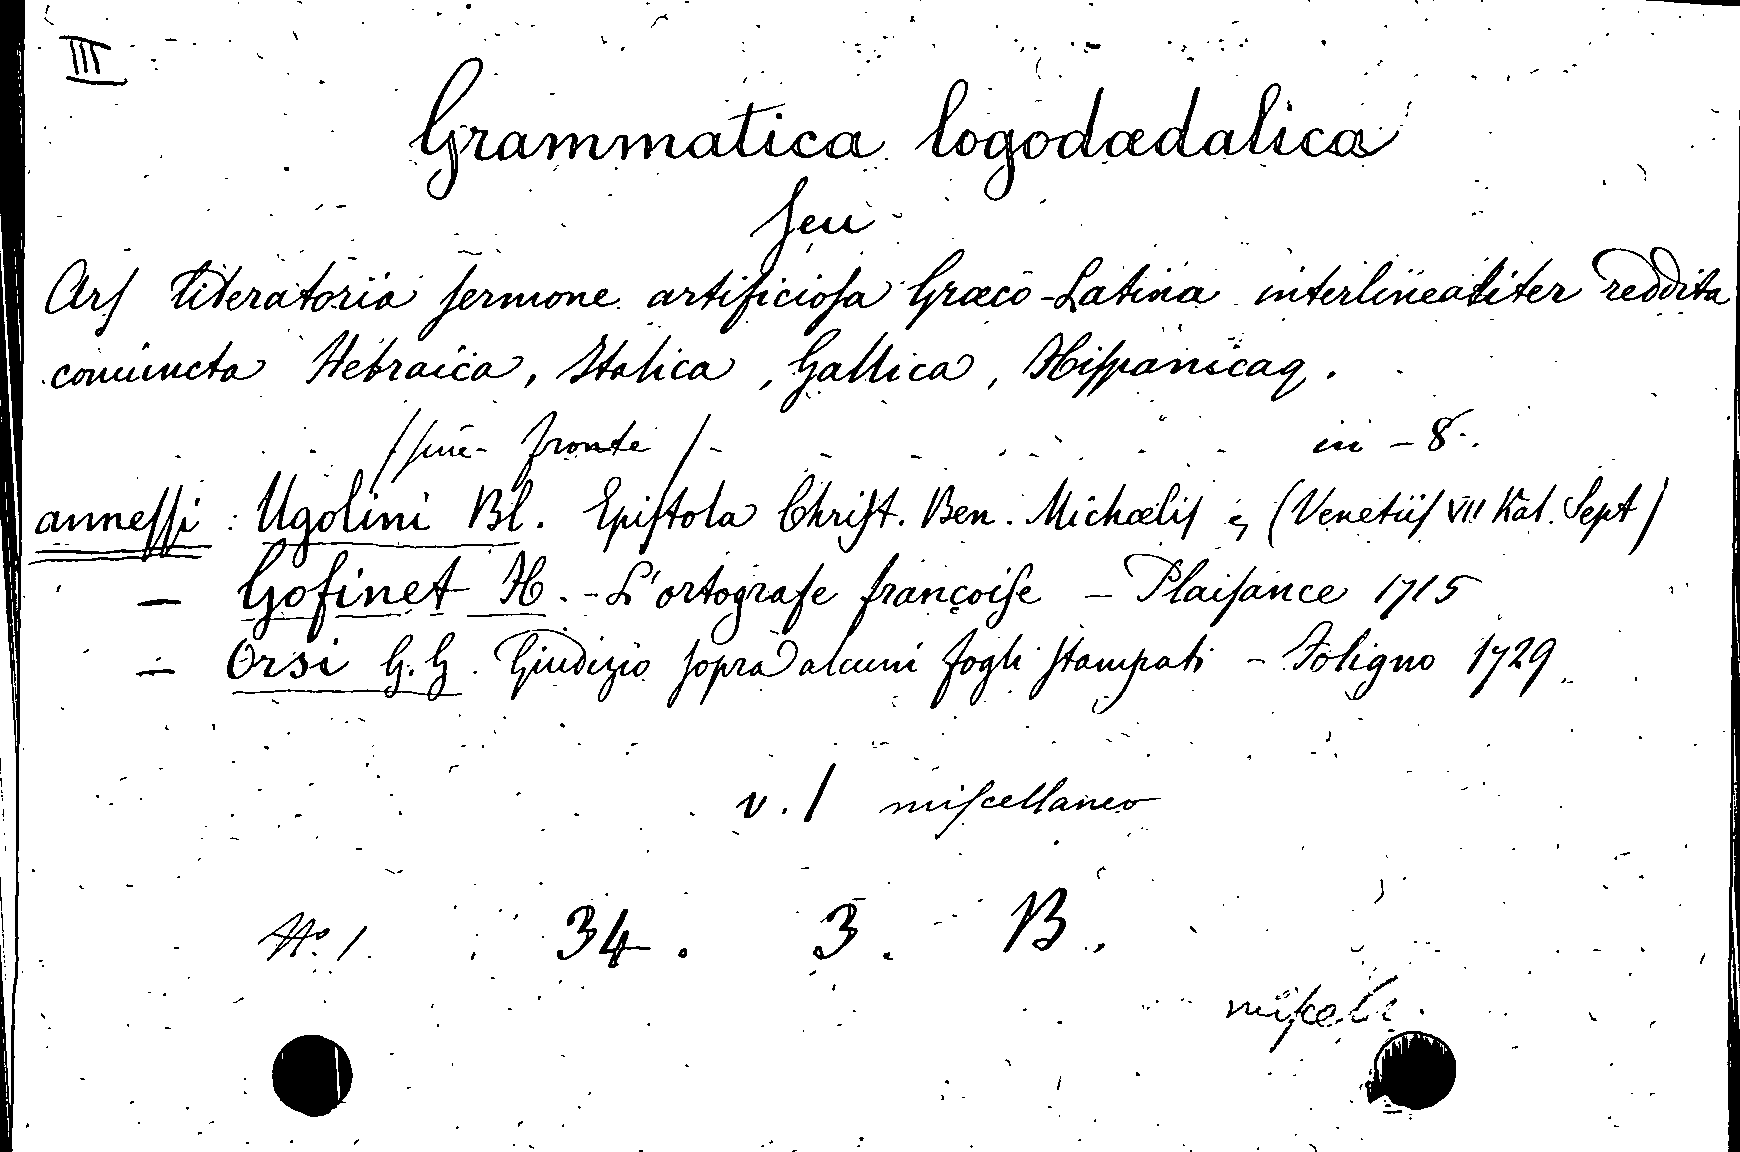 III
Grammatica logodædalica
ſeu
Arſ literatoria ſermone artificioſa Græco-Latina interlineatiter reddita
coniuncta Hebraica, Italica, Gallica, Hiſpanicaq.
(ſine fronte) - in - 8.
anneſſi : Ugolini Bl. Epiſtola Chriſt. Ben. Michæliſ (Venetiiſ VII Kal. Sept)
— Gofinet H. - L'ortografe françoiſe - Plaiſance 1715
— Orsi G. G. Giudizio ſopra alcuni fogli ſtampati - Foligno 1729
v. 1 miſcellaneo
N.º 1. 34. 3. B.
miſcell.